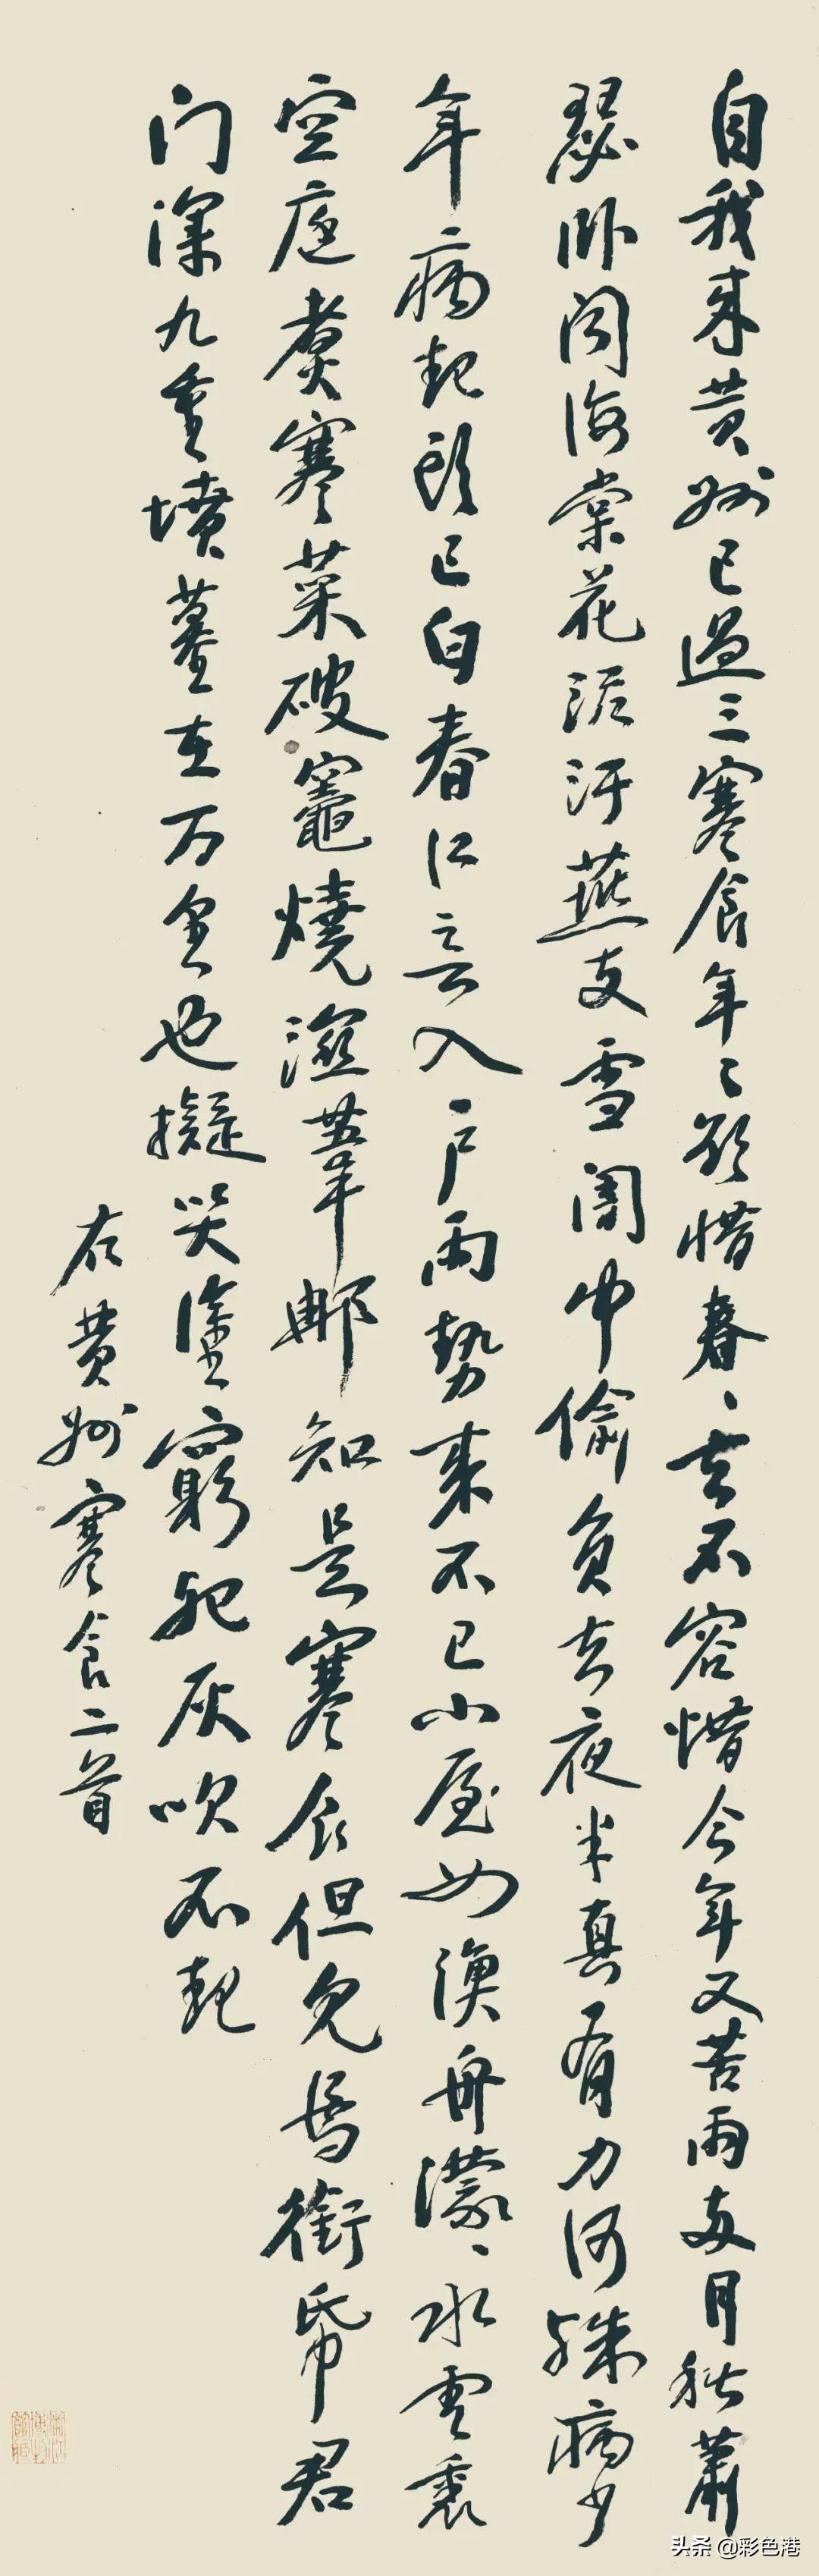 自我来黄州已過三寒食年〻欲惜春〻去不容惜今年又苦雨两月秋蕭
瑟卧聞海棠花泥汙燕支雪闇中偷負去夜半真有力何殊病少
年病起頭已白春江入户雨勢来不已小屋如漁舟濛〻水雲裏
空庖煮寒菜破竈燒濕葦那知是寒食但見烏銜帋君
门深九重墳墓在万里也擬哭塗窮死灰吹不起
右黄州寒食二首
头条 @彩色港